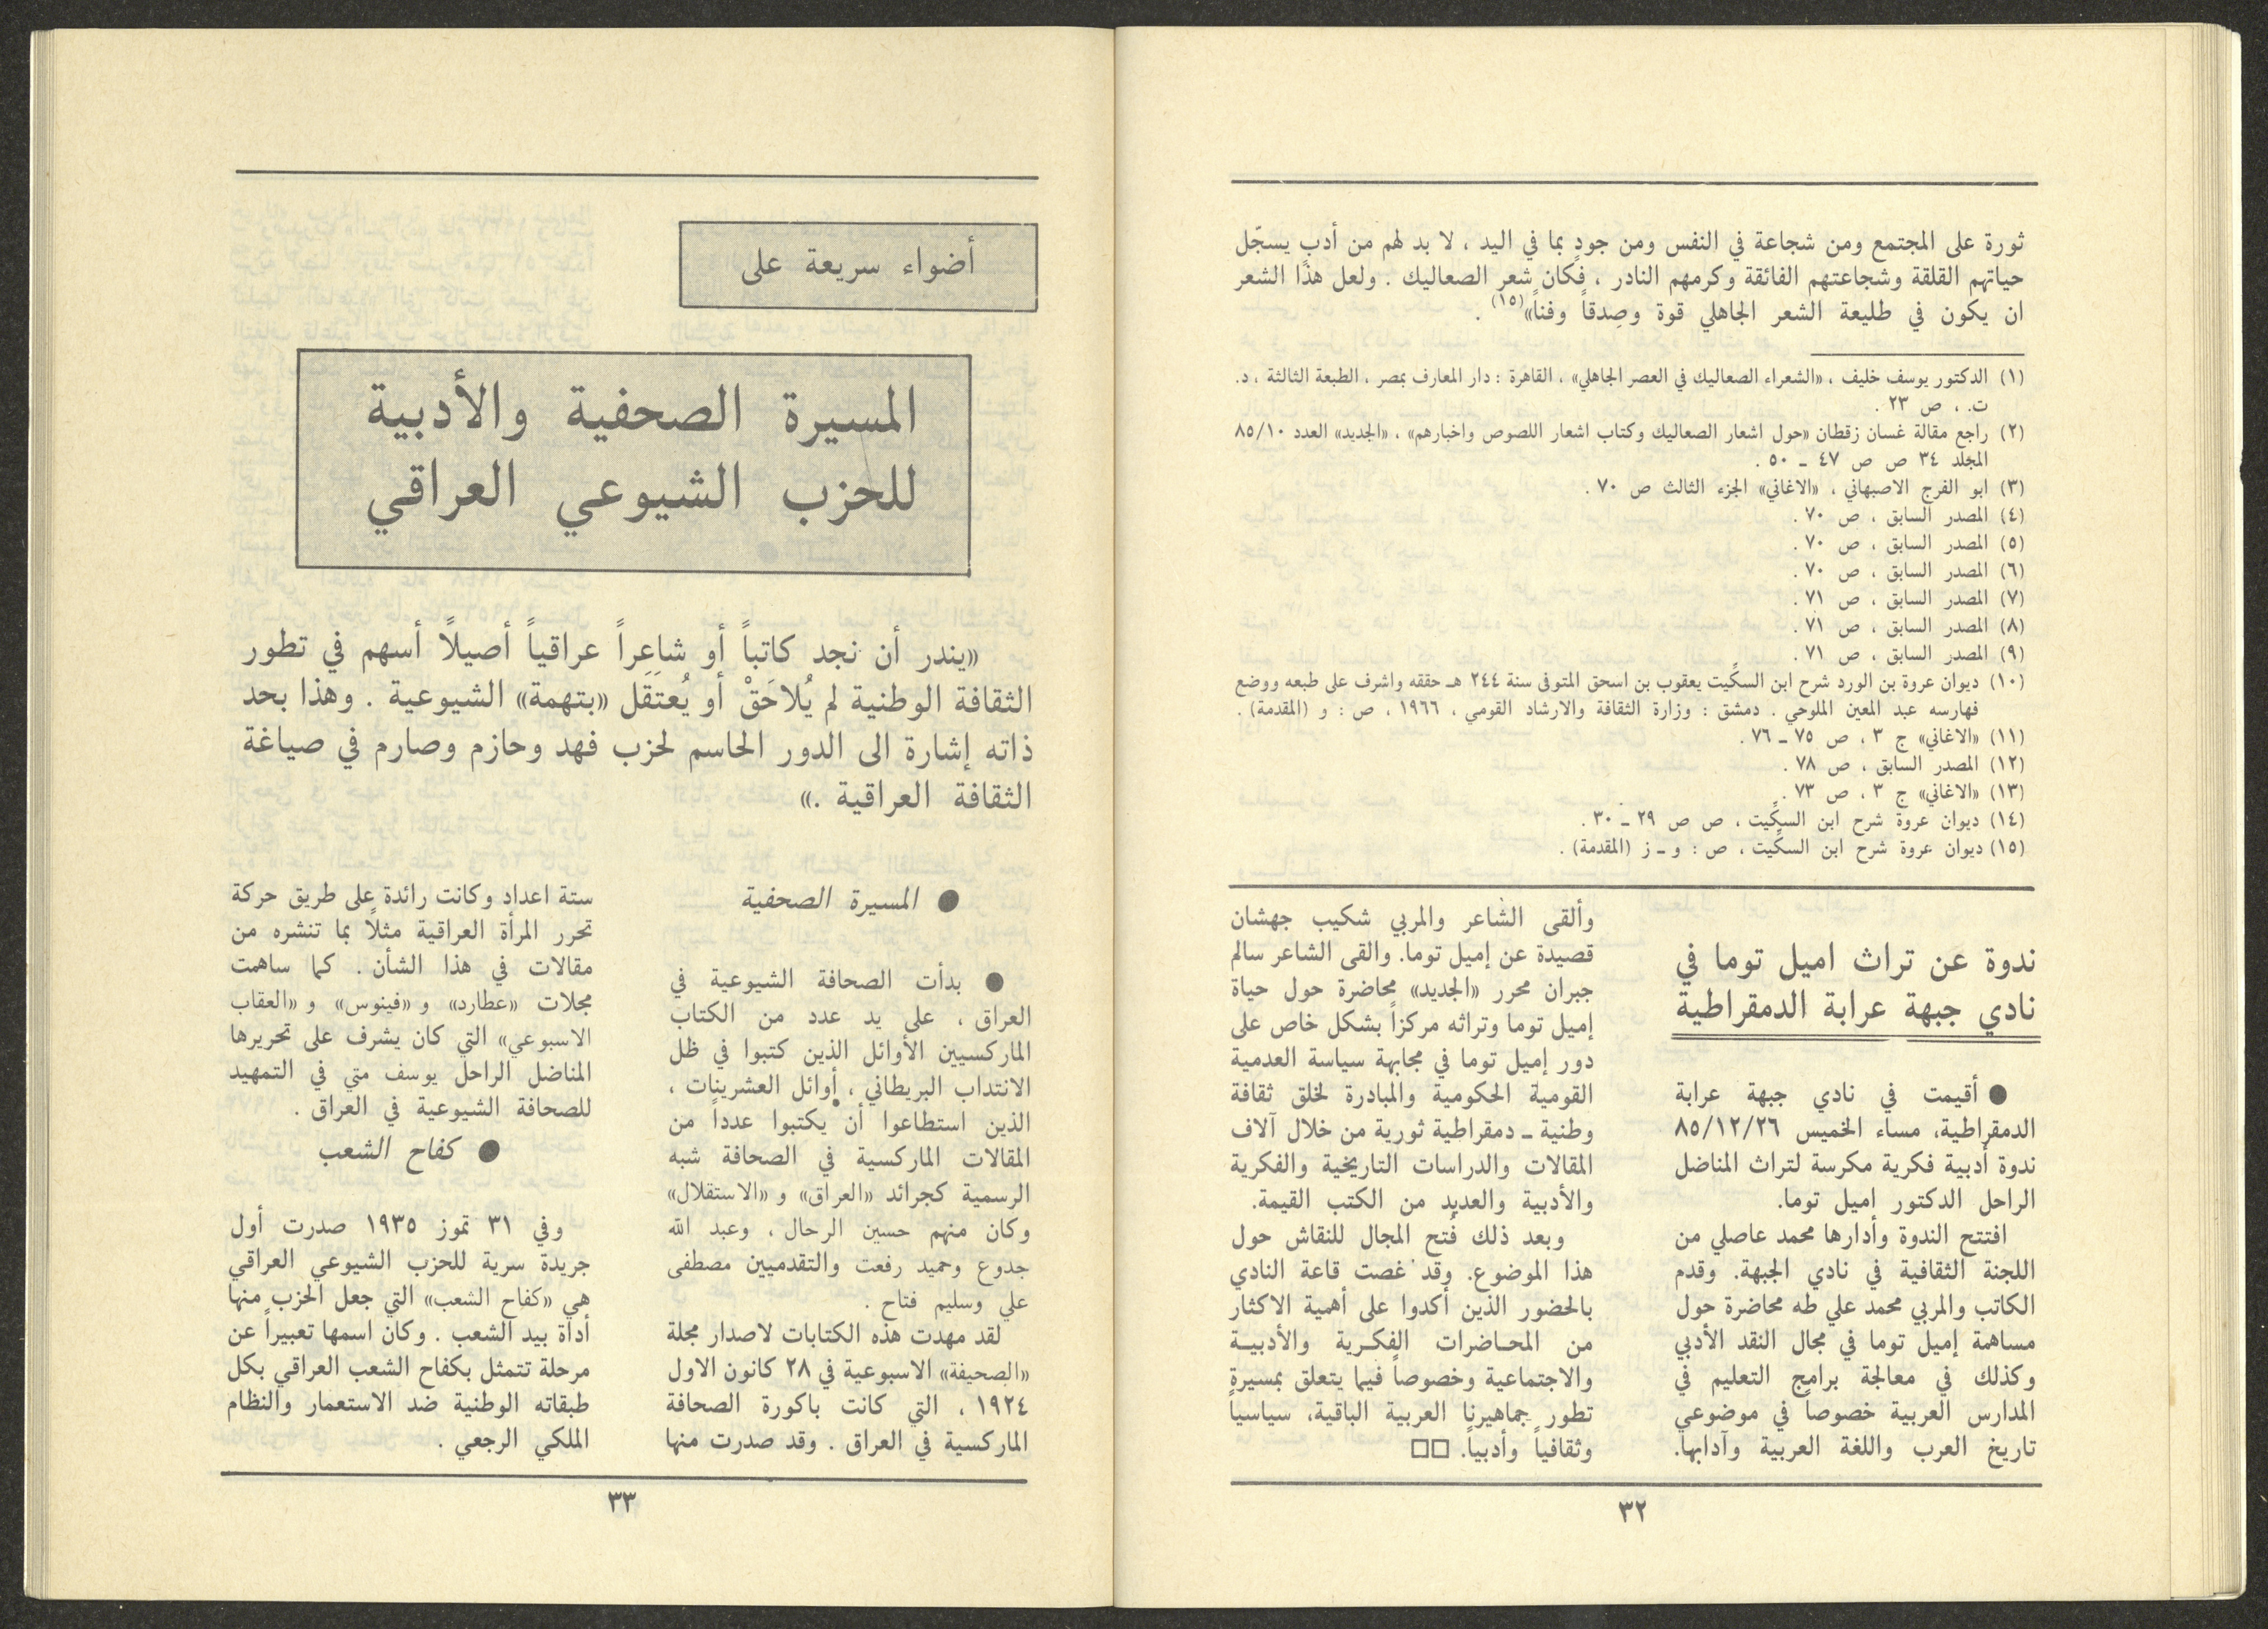 ثورة على المجتمع ومن شجاعة في النفس ومن جودٍ بما في اليد ، لا بد لهم من أدبٍ يسجّل
حياتهم القلقة وشجاعتهم الفائقة وكرمهم النادر ، فكان شعر الصعاليك . ولعل هذا الشعر
ان يكون في طليعة الشعر الجاهلي قوة وصِدقاً وفناً»(١٥) .
(١) الدكتور يوسف خليف ، «الشعراء الصعاليك في العصر الجاهلي» ، القاهرة : دار المعارف بمصر ، الطبعة الثالثة ، د.
ت. ، ص ٢٣ .
(٢) راجع مقالة غسان زقطان «حول اشعار الصعاليك وكتاب اشعار اللصوص واخبارهم» ، «الجديد» العدد ٨٥/١٠
المجلد ٣٤ ص ص ٤٧ ـ ٥٠ .
(٣) ابو الفرج الاصبهاني ، «الاغاني» الجزء الثالث ص ٧٠ .
(٤) المصدر السابق ، ص ٧٠ .
(٥) المصدر السابق ، ص ٧٠ .
(٦) المصدر السابق ، ص ٧٠ .
(٧) المصدر السابق ، ص ٧١ .
(٨) المصدر السابق ، ص ٧١ .
(٩) المصدر السابق ، ص ٧١ .
(١٠) ديوان عروة بن الورد شرح ابن السكّيت يعقوب بن اسحق المتوفى سنة ٢٤٤ هـ حققه واشرف على طبعه ووضع
فهارسه عبد المعين الملوحي . دمشق : وزارة الثقافة والارشاد القومي ، ١٩٦٦ ، ص : و (المقدمة) .
(١١) «الاغاني» ج ٣ ، ص ٧٥ ـ ٧٦ .
(١٢) المصدر السابق ، ص ٧٨ .
(١٣) «الاغاني» ج ٣ ، ص ٧٣ .
(١٤) ديوان عروة شرح ابن السكّيت ، ص ص ٢٩ ـ ٣٠ .
(١٥) ديوان عروة شرح ابن السكّيت ، ص : و ـ ز (المقدمة) .
ندوة عن تراث اميل توما في
نادي جبهة عرابة الدمقراطية
● أقيمت في نادي جبهة عرابة
الدمقراطية، مساء الخميس ٨٥/١٢/٢٦
ندوة أدبية فكرية مكرسة لتراث المناضل
الراحل الدكتور اميل توما.
افتتح الندوة وأدارها محمد عاصلي من
اللجنة الثقافية في نادي الجبهة. وقدم
الكاتب والمربي محمد علي طه محاضرة حول
مساهمة إميل توما في مجال النقد الأدبي
وكذلك في معالجة برامج التعليم في
المدارس العربية خصوصاً في موضوعي
تاريخ العرب واللغة العربية وآدابها.
وألقى الشاعر والمربي شكيب جهشان
قصيدة عن إميل توما. والقى الشاعر سالم
جبران محرر «الجديد» محاضرة حول حياة
إميل توما وتراثه مركزاً بشكل خاص على
دور إميل توما في مجابهة سياسة العدمية
القومية الحكومية والمبادرة لخلق ثقافة
وطنية ـ دمقراطية ثورية من خلال آلاف
المقالات والدراسات التاريخية والفكرية
والأدبية والعديد من الكتب القيمة.
وبعد ذلك فُتح المجال للنقاش حول
هذا الموضوع. وقد غصت قاعة النادي
بالحضور الذين أكدوا على أهمية الاكثار
من المحـاضرات الفكـرية والأدبيـة
والاجتماعية وخصوصاً فيما يتعلق بمسيرة
تطور جماهيرنا العربية الباقية، سياسياً
وثقافياً وأدبياً. □□
٣٢
أضواء سريعة على
المسيرة الصحفية والأدبية
للحزب الشيوعي العراقي
«يندر أن نجد كاتباً أو شاعِراً عراقياً أصيلاً أسهم في تطور
الثقافة الوطنية لم يُلاحَقْ أو يُعتَقَل «بتهمة» الشيوعية . وهذا بحد
ذاته إشارة الى الدور الحاسم لحزب فهد وحازم وصارم في صياغة
الثقافة العراقية .»
● المسيرة الصحفية
● بدأت الصحافة الشيوعية في
العراق ، على يد عدد من الكتاب
الماركسيين الأوائل الذين كتبوا في ظل
الانتداب البريطاني ، أوائل العشرينات ،
الذين استطاعوا أن يكتبوا عدداً من
المقالات الماركسية في الصحافة شبه
الرسمية كجرائد «العراق» و «الاستقلال»
وكان منهم حسين الرحال ، وعبد الله
جدوع وحميد رفعت والتقدميين مصطفى
علي وسليم فتاح .
لقد مهدت هذه الكتابات لاصدار مجلة
«الصحيفة» الاسبوعية في ٢٨ كانون الاول
١٩٢٤ ، التي كانت باكورة الصحافة
الماركسية في العراق . وقد صدرت منها
ستة اعداد وكانت رائدة على طريق حركة
تحرر المرأة العراقية مثلاً بما تنشره من
مقالات في هذا الشأن . كما ساهمت
مجلات «عطارد» و «فينوس» و «العقاب
الاسبوعي» التي كان يشرف على تحريرها
المناضل الراحل يوسف متي في التمهيد
للصحافة الشيوعية في العراق .
● كفاح الشعب
وفي ٣١ تموز ١٩٣٥ صدرت أول
جريدة سرية للحزب الشيوعي العراقي
هي «كفاح الشعب» التي جعل الحزب منها
أداة بيد الشعب . وكان اسمها تعبيراً عن
مرحلة تتمثل بكفاح الشعب العراقي بكل
طبقاته الوطنية ضد الاستعمار والنظام
الملكي الرجعي .
٣٣